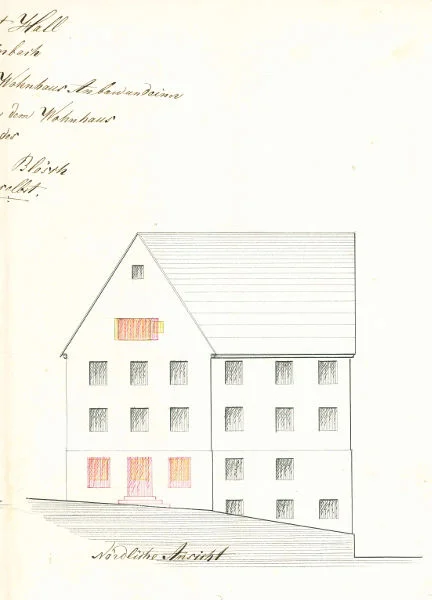 Hall
Wohnhaus Anbau und einn
dem Wohnhaus
des
Blösch
selbst.
Nördliche Ansicht